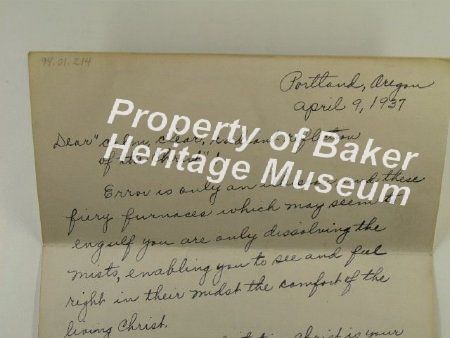 94.01.214
Portland, Oregon
April 9, 1937
Dear "calm, clear, radiant reflection
of the
Error is only an and these
fiery furnaces which may seem to
engulf you are only dissolving the
mists, enabling you to see and feel
right in their midst the comfort of the
living Christ.
Christ is your
Property of Baker
Heritage Museum